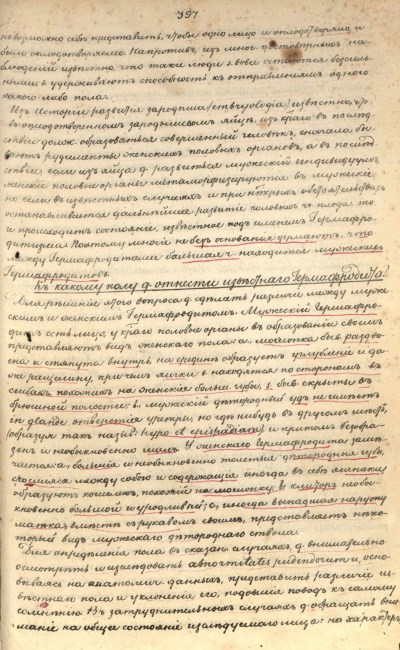 397
невозможно себѣ представить, чтобы одно лицо и оплодотворяло и
было оплодотворяемо. Напротивъ, из многихъ достовѣрныхъ наб-
людений извѣстно, что такіе люди или вовсе остаются безсиль-
ными и удерживаютъ способность къ отправленіямъ одного
какого-либо пола.
Изъ исторіи развитія зародыша (embryologia) извѣстно, что
въ оплодотворенномъ зародышевомъ яйцѣ, изъ коего въ послѣд-
ствіи долженъ образоваться совершенный человѣкъ, сначала бы-
ваютъ рудименты женскихъ половыхъ органовъ, а въ послѣд-
ствіи если изъ яйца д. развиться мужескій индивидуумъ
женскіе половые органы метаморфозируются въ мужескіе
но если въ извѣстныхъ случаяхъ и при нѣкоторыхъ обстоятельствахъ
останавливается дальнѣйшее развитіе половыхъ ч. плода то
и происходитъ состояніе, извѣстное подъ именемъ Гермафро-
дитизма. Поэтому многіе не безъ основанія думаютъ, что
между Гермафродитами большая ч. находится мужескихъ
Гермафродитовъ.
Къ какому полу д. отнести извѣстнаго Гермафродита?
Для рѣшенія этого вопроса д. сдѣлать различіе между муже-
скимъ и женскимъ Гермафродитомъ. Мужескій Гермафро-
дитъ есть лице, у коего половые органы въ образованіи своемъ
представляютъ видъ женскаго пола: а, мошонка бывъ раздво-
ена и втянута внутрь, на срединѣ образуетъ углубленіе и да-
же расщелину, причемъ яички находятся по сторонамъ въ
складкахъ, похожихъ на женскія большія губы, или бывъ скрыты въ
брюшной полости; в, мужескій дѣтородный удъ не имѣетъ
in glande отверстія уретры, но гдѣ нибудь въ другомъ мѣстѣ,
(образуя такъ назыв. hypo et epispadiam) и притомъ безобра-
зенъ и необыкновенно малъ. У женскаго гермафродита замѣ-
чается: а, большія и необыкновенно толстыя дѣтородныя губы,
сросшіяся между собою и содержащія иногда въ себѣ яичники
образуютъ кошелекъ, похожій на мошонку; в, клиторъ необы-
кновенно большой и уродливый; с, иногда выпадшая наружу
матка, вмѣстѣ съ рукавомъ своимъ, представляетъ нѣко-
торый видъ мужескаго дѣтороднаго ствола.
Для опредѣленія пола въ сказан. случаяхъ, д. внимательно
осмотрѣть и изслѣдовать abnormitates pudendorum и, осно-
вываясь на анатомич. данныхъ, представить различіе из-
вѣстнаго пола и уклоненіе его, подавшія поводъ къ самому
сомнѣнію. Въ затруднительныхъ случаяхъ д. обращать вни-
маніе на общее состояніе изслѣдуемаго лица: на характеръ,